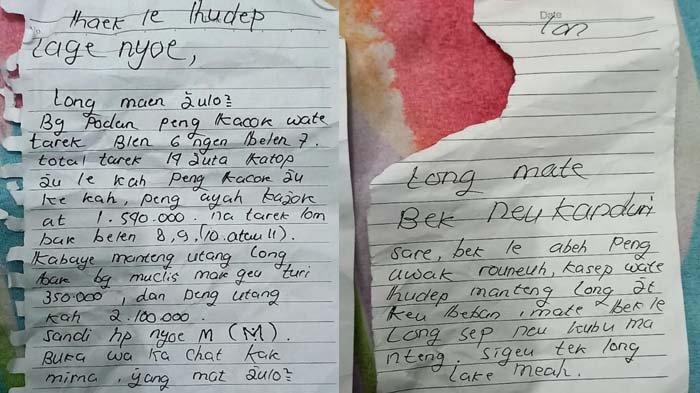 thaek le hudep
lage nyoe,
Long maen Julo2
Bg Podan peng Kacok wate
tarek Blen 6 ngen belen 7.
total tarek 14 Juta Katop
Ju le kah peng kacok Ju
ke kah, peng ayah kacok
at 1.590.000. na tarek lom
bak belen 8, 9, (10. atau 11).
Kabaye manteng utang long
bak bg muclis mak geu turi
350.000, dan peng utang
kah 2.100.000.
Sandi hp nyoe M (M).
Buka wa ka chat kak
mirna, yang mat Julo2
Date
Lon
Long mate
Bek neu kanduri
sare, bek le abeh peng
awak rouneuh, kasep wate
hudep manteng long Jt
keu beban, mate bek le
Long sep neu kubu ma
nteng. sigeu tek long
lake meah.